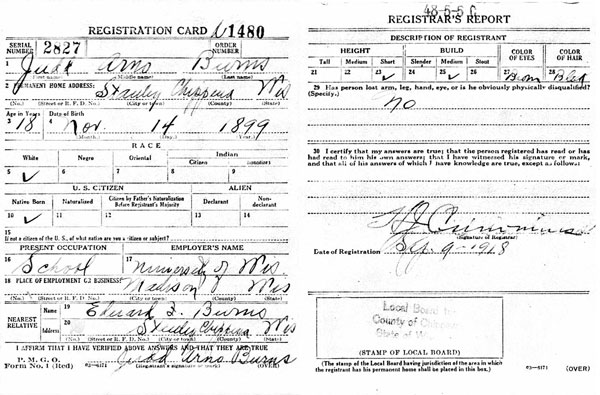 REGISTRATION CARD № 1480
SERIAL NUMBER 2827 ORDER NUMBER
1 Judd Arno Burns
(First name) (Middle name) (Last name)
2 PERMANENT HOME ADDRESS:
Stanley Chippewa Wis
(No.) (Street or R. F. D. No.) (City or town) (County) (State)
Age in Years Date of Birth
3 18 4 Nov. 14 1899
(Month.) (Day.) (Year.)
RACE
White Negro Oriental Indian
Citizen Noncitizen
5 ✓ 6 7 8 9
U. S. CITIZEN ALIEN
Native Born Naturalized Citizen by Father's Naturalization Before Registrant's Majority Declarant Non-declarant
10 ✓ 11 12 13 14
15
If not a citizen of the U. S., of what nation are you a citizen or subject?
PRESENT OCCUPATION EMPLOYER'S NAME
16 School 17 University of Wis.
18 PLACE OF EMPLOYMENT OR BUSINESS:
Madison Wis
(No.) (Street or R. F. D. No.) (City or town) (County) (State)
NEAREST RELATIVE
Name 19 Edward Burns
Address 20 Stanley Chippewa Wis
(No.) (Street or R. F. D. No.) (City or town) (County) (State)
I AFFIRM THAT I HAVE VERIFIED ABOVE ANSWERS AND THAT THEY ARE TRUE
P. M. G. O.
Form No. 1 (Red) Judd Arno Burns
(Registrant's signature or mark) (OVER)
48-5-5 C
REGISTRAR'S REPORT
DESCRIPTION OF REGISTRANT
HEIGHT BUILD COLOR OF EYES COLOR OF HAIR
Tall Medium Short Slender Medium Stout
21 22 23 ✓ 24 25 ✓ 26 27 Brown 28 Black
29 Has person lost arm, leg, hand, eye, or is he obviously physically disqualified?
(Specify.)
No
30 I certify that my answers are true; that the person registered has read or has
had read to him his own answers; that I have witnessed his signature or mark,
and that all of his answers of which I have knowledge are true, except as follows:
Crimmins
(Signature of Registrar)
Date of Registration Sep. 9-1918
Local Board for
County of Chippewa
State of
(STAMP OF LOCAL BOARD)
(The stamp of the Local Board having jurisdiction of the area in which
the registrant has his permanent home shall be placed in this box.)
03-6171 (OVER)